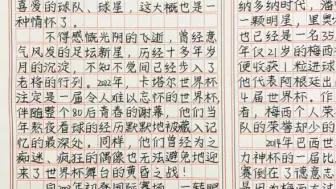 喜爱的球队、球星，这大概也是一
种情怀了。
不得感慨光阴的飞逝，曾经意
气风发的足坛新星，历经十多年岁
月的沉淀，不知不觉间已经步入了
老将的行列。2022年，卡塔尔世界杯
注定是一届令人难以忘怀的世界杯，
伴随整个80后青春的谢幕，他们当
年熬夜看球的经历默默地被藏入记
忆的最深处，同样，他们曾经为之
痴迷、疯狂的偶像也无法避免地迎
来了世界杯舞台的黄昏之战！
纳多纳时代，
一颗明星，里
也已经是一名35
年仅21岁的梅西
便收获1粒进球
他代表阿根廷出
4届世界杯。
者，梅西个人荣
队的荣誉却少的
2014年巴西世
力神杯的一届比
赛倒在了德意